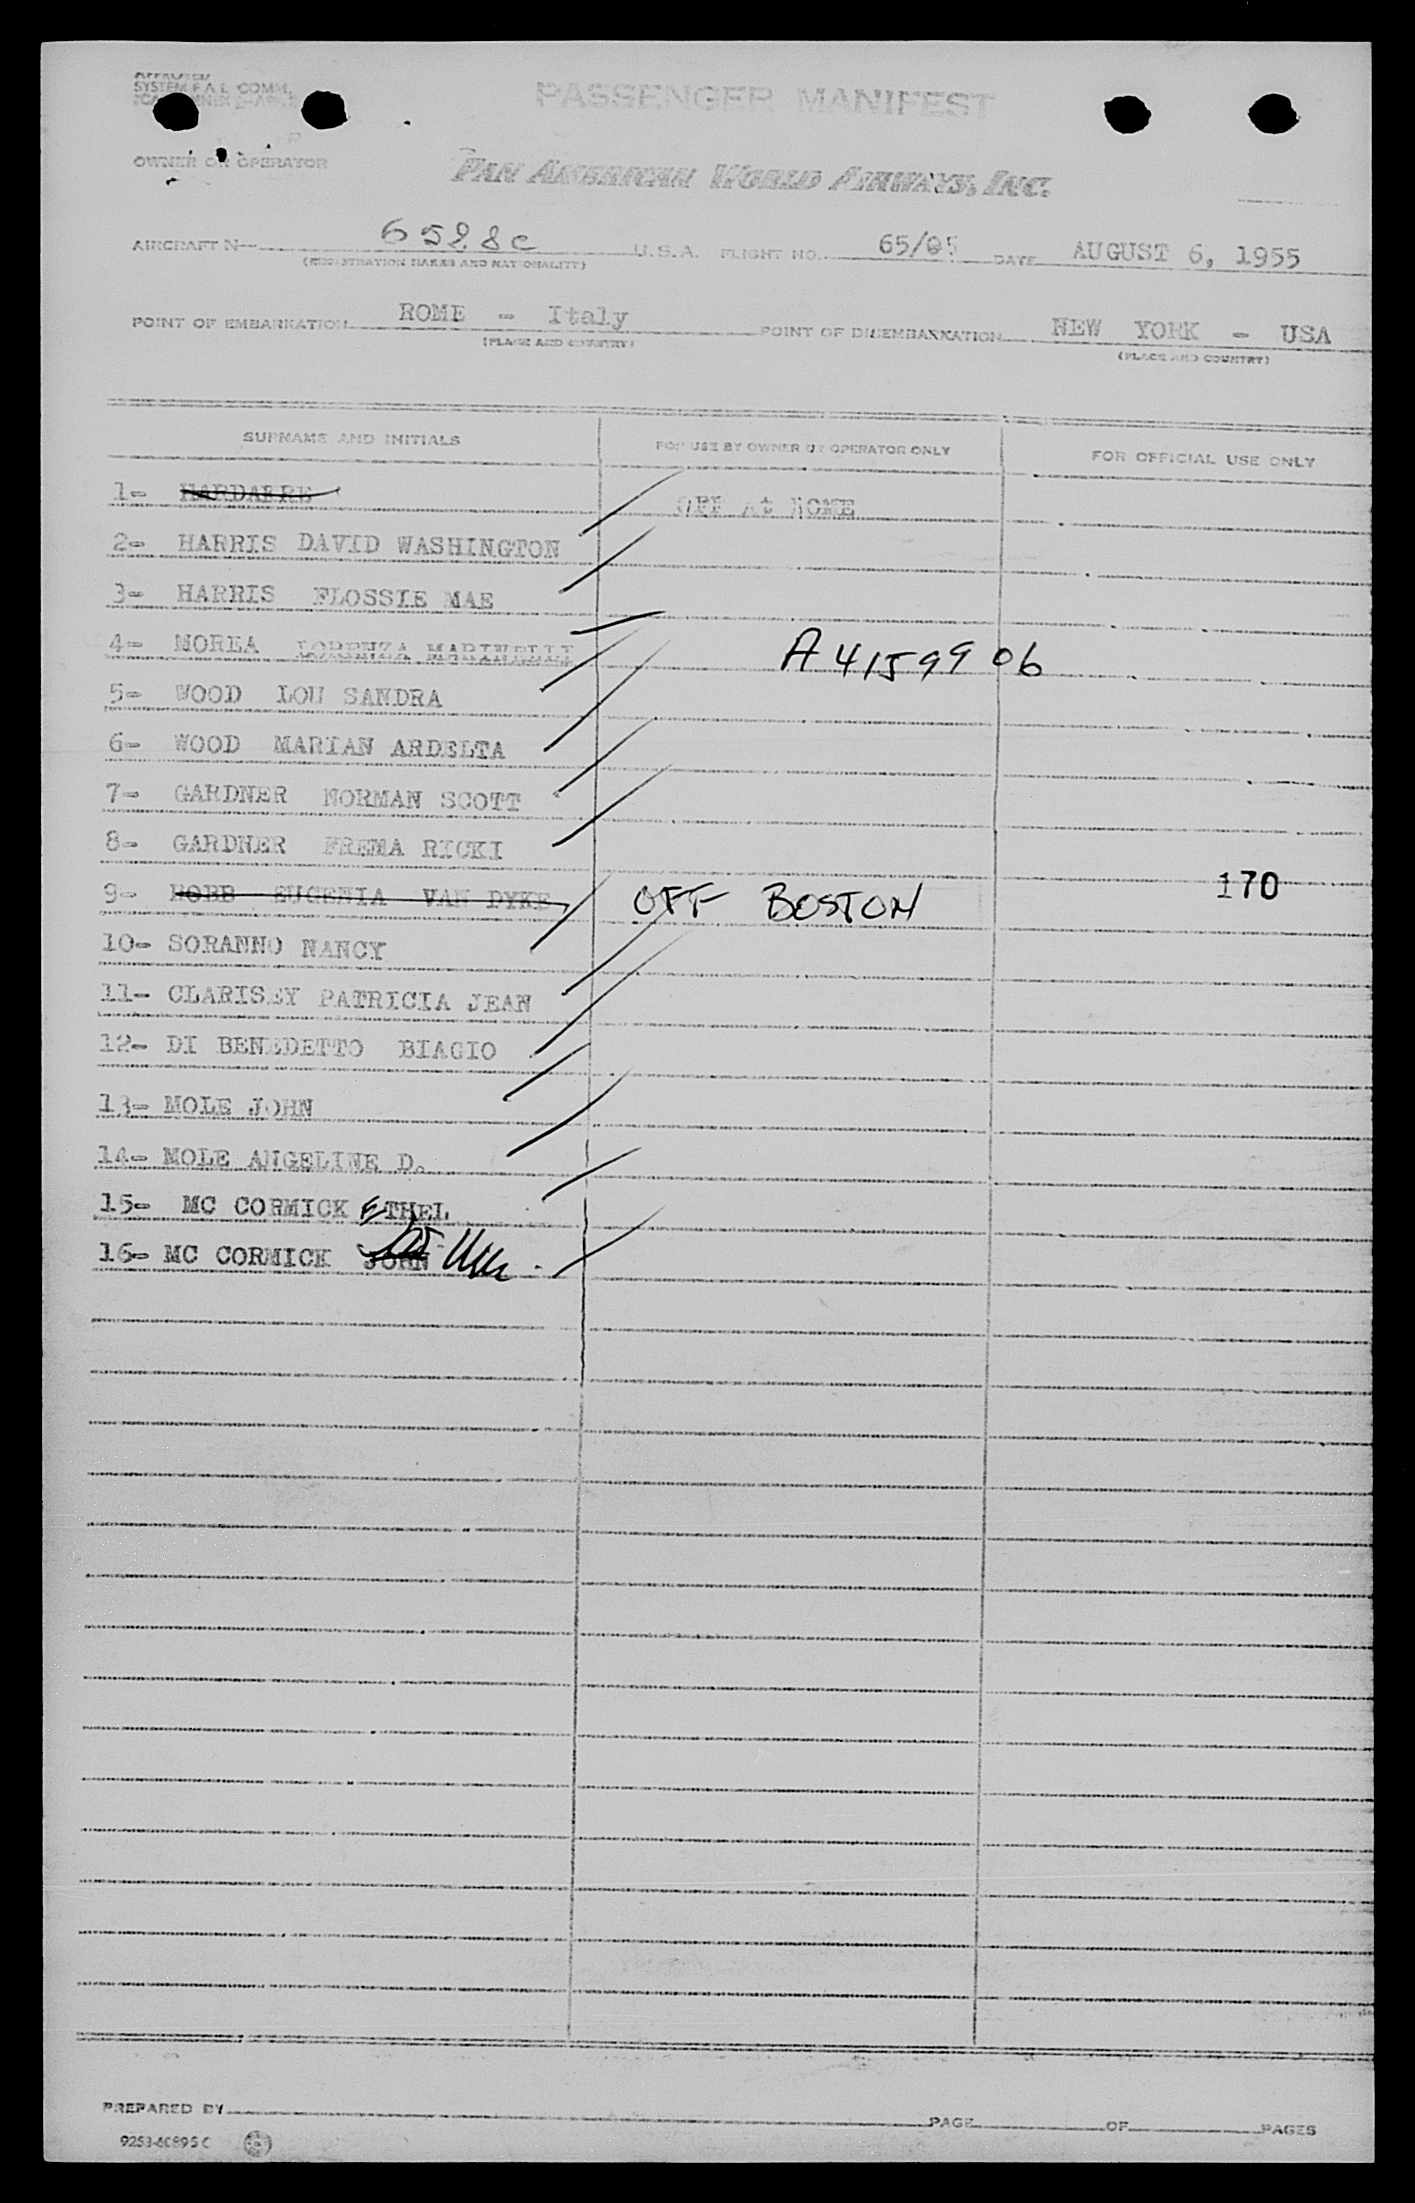 APPROVED
SYSTEM F.A.L. COMM.
OWNER OR OPERATOR
PASSENGER MANIFEST
PAN AMERICAN WORLD AIRWAYS, INC.
AIRCRAFT N— 6528C U.S.A. FLIGHT NO. 65/05 DATE AUGUST 6, 1955
(REGISTRATION MARKS AND NATIONALITY)
POINT OF EMBARKATION ROME - Italy POINT OF DISEMBARKATION NEW YORK - USA
(PLACE AND COUNTRY) (PLACE AND COUNTRY)
SURNAME AND INITIALS FOR USE BY OWNER OR OPERATOR ONLY FOR OFFICIAL USE ONLY
1- HARDAERE OFF At ROME
2- HARRIS DAVID WASHINGTON
3- HARRIS FLOSSIE MAE
4- MOREA LORENZA MARINELLI A4159906
5- WOOD LOU SANDRA
6- WOOD MARIAN ARDELTA
7- GARDNER NORMAN SCOTT
8- GARDNER FREMA RICKI
9- HOBB EUGENIA VAN DYKE OFF BOSTON 170
10- SORANNO NANCY
11- CLARISEY PATRICIA JEAN
12- DI BENEDETTO BIAGIO
13- MOLE JOHN
14- MOLE ANGELINE D.
15- MC CORMICK ETHEL
16- MC CORMICK JOHN
PREPARED BY PAGE OF PAGES